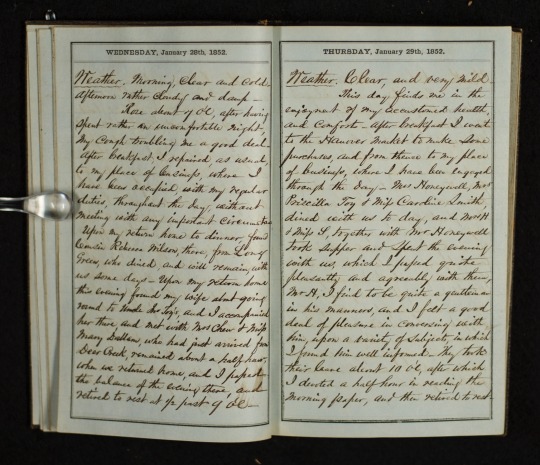 WEDNESDAY, January 28th, 1852.
Weather. Morning Clear and Cold
afternoon rather Cloudy and damp –
Rose about 7 OC, after having
spent rather an uncomfortable night,
my Cough troubling me a good deal –
After breakfast I repaired, as usual,
to my place of business, where I
have been occupied, with my regular
duties, throughout the day without
meeting with any important Circumstance
Upon my return home to dinner found
Cousin Rebecca Wilson, there, from Long
Green, who dined, and will remain with
us some days – Upon my return home
this evening found my wife about going
round to Uncle Toy's, and I accompanied
her there and met with Mrs Chew & Miss
Mary, who had just arrived from
Deer Creek, remained about a half hour,
when we returned home, and I passed
the balance of the evening there, and
retired to rest at ½ past 9 OC –
THURSDAY, January 29th, 1852.
Weather. Clear, and very mild –
This day finds me in the
enjoyment of my accustomed health,
and Comforts – After breakfast I went
to the Hanover Market to make some
purchases, and from thence to my place
of business, where I have been engaged
through the day – Mrs Honeywell, Mrs
Priscilla Toy & Miss Caroline Smith,
dined with us to day, and Mrs H
& Miss S, together with Mr Honeywell
took supper and spent the evening
with us, which I passed quite
pleasantly and agreeably with them,
Mr H, I find to be quite a gentleman
in his manners, and I felt a good
deal of pleasure in Conversing with
him, upon a variety of Subjects, in which
I found him well informed – They took
their leave about 10 OC, after which
I devoted a half hour in reading the
Morning paper, and then retired to rest –